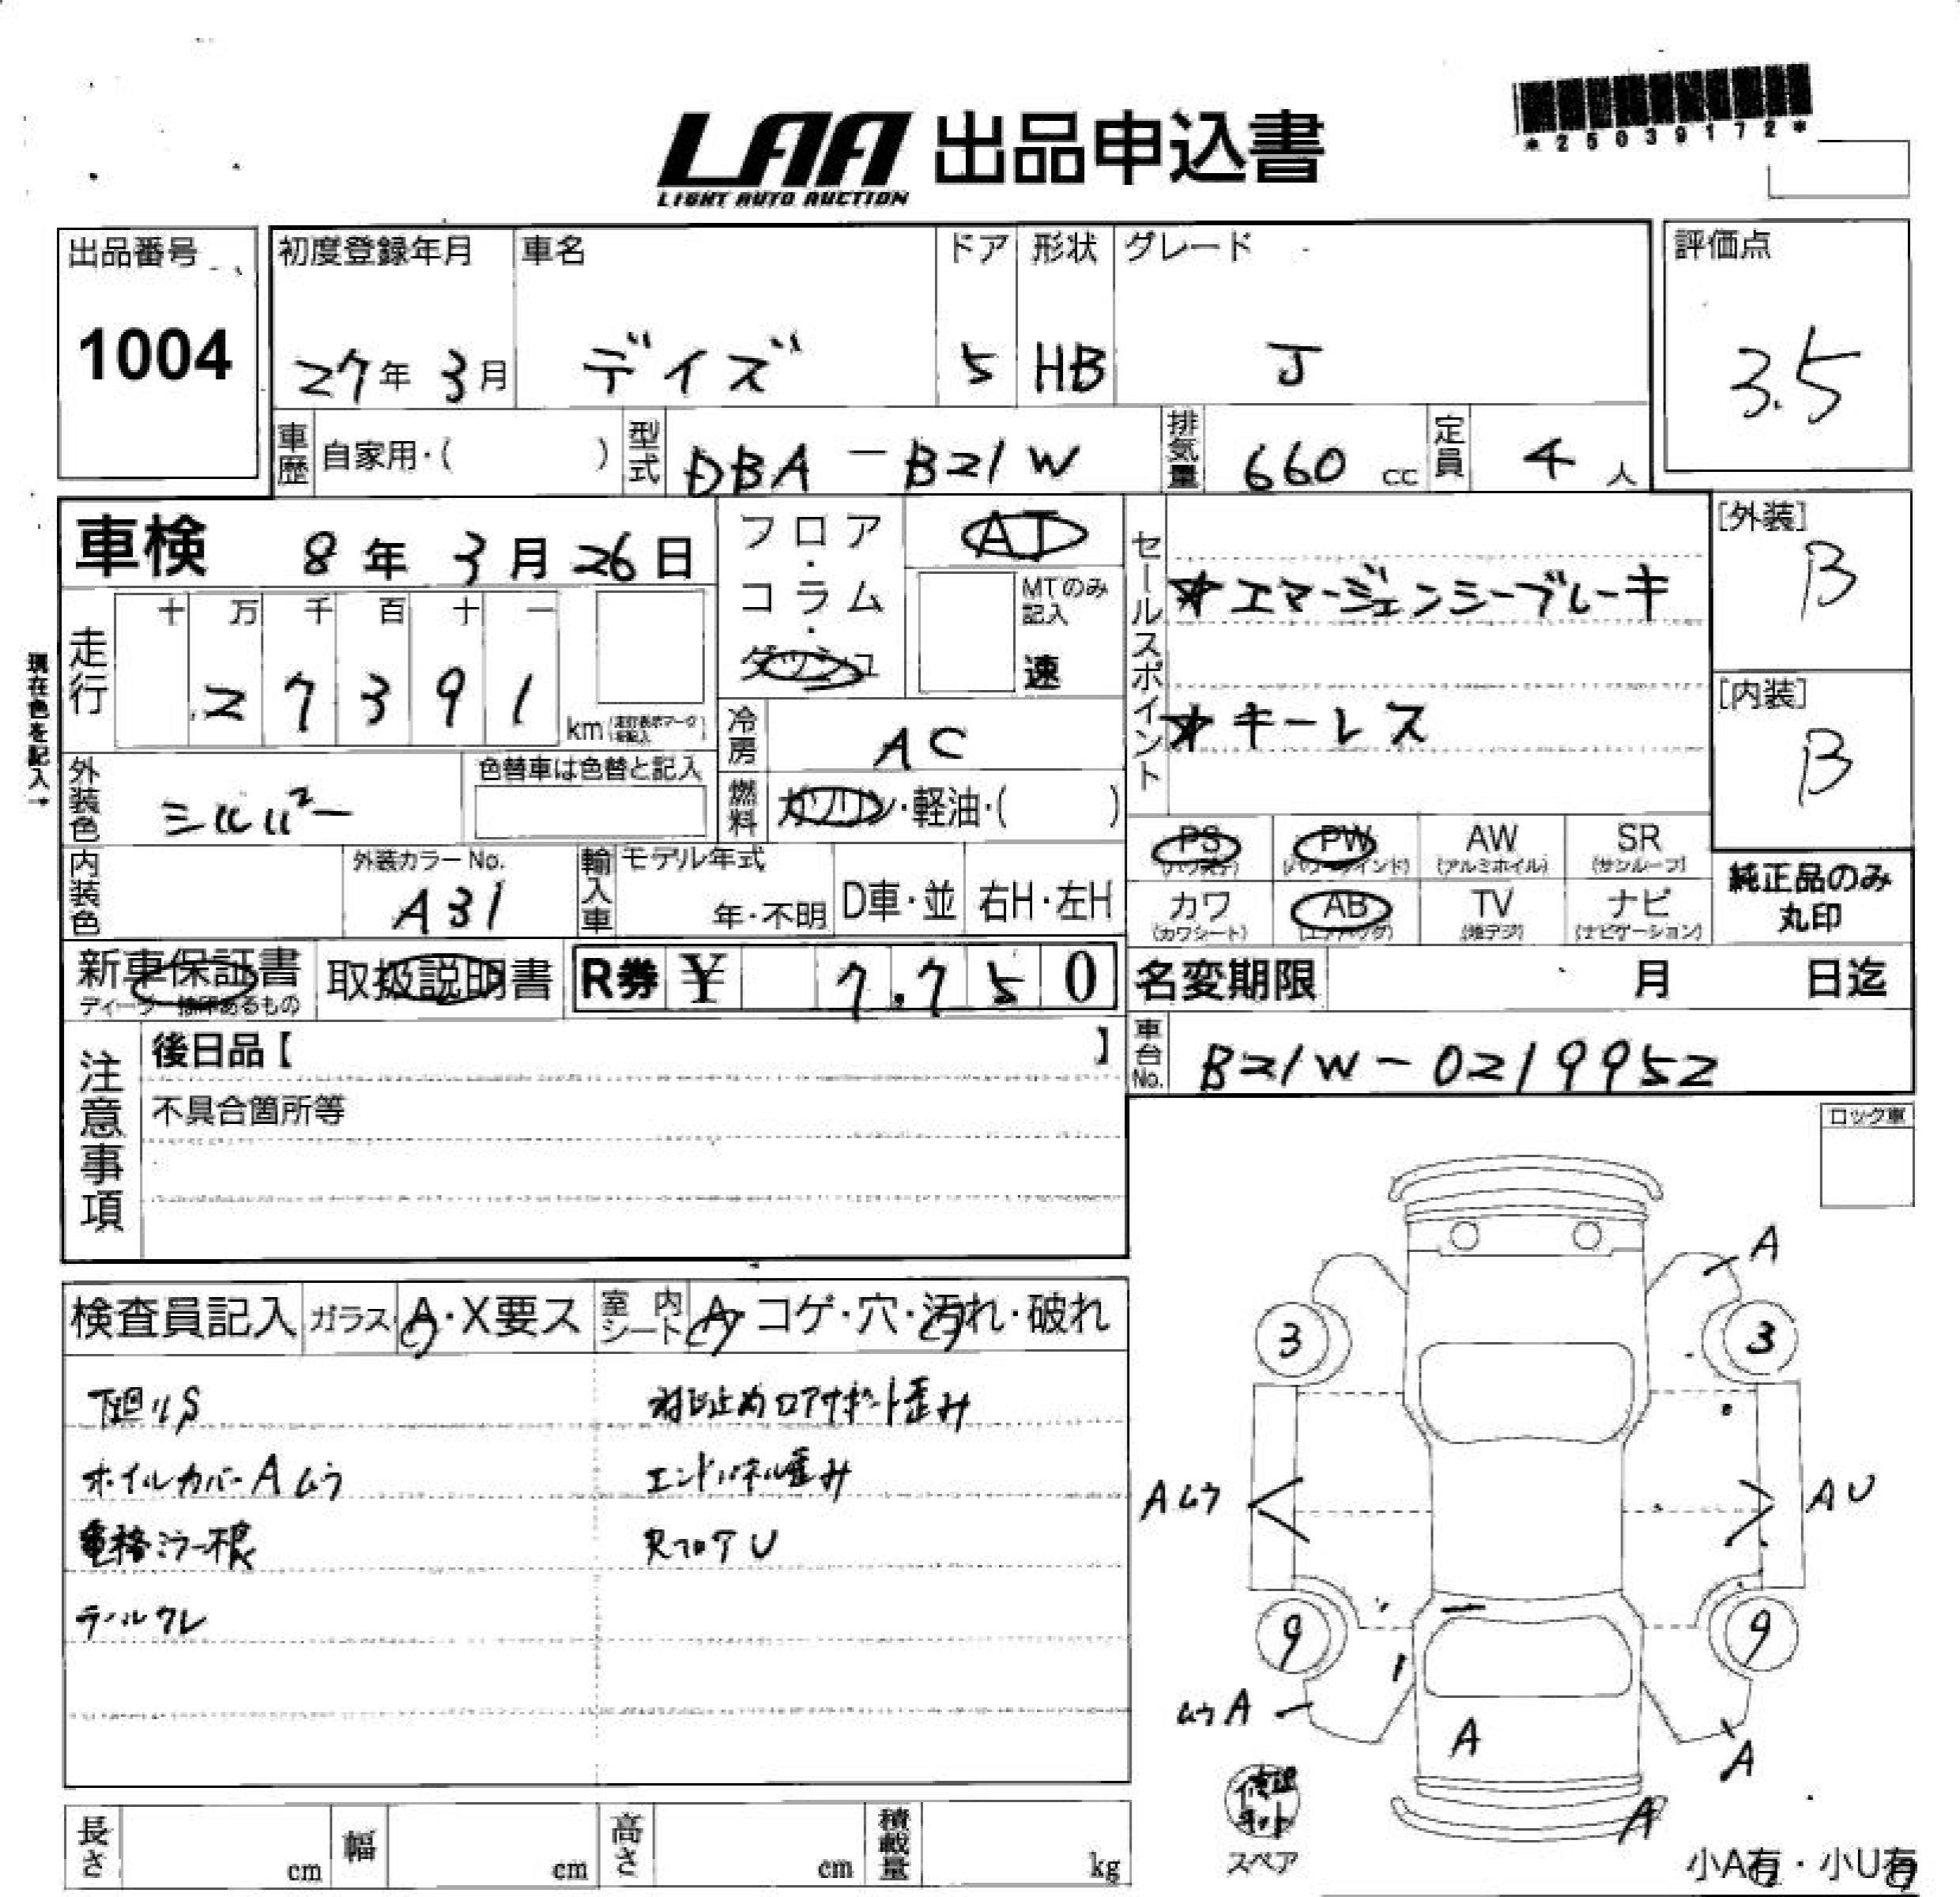 *25039172*
LAA 出品申込書
LIGHT AUTO AUCTION
出品番号 初度登録年月 車名 ドア 形状 グレード 評価点
1004 27年 3月 デイズ 5 HB J 3.5
車歴 自家用・( ) 型式 DBA-B21W 排気量 660 cc 定員 4 人
車検 8年 3月 26日
フロア・コラム・ダッシュ
AT
MTのみ記入
速
セールスポイント
★エマージェンシーブレーキ
★キーレス
[外装]
B
[内装]
B
現在色を記入→
走行 十 万 千 百 十 一
2 7 3 9 1 km
冷房 AC
燃料 ガソリン・軽油・( )
外装色 シルバー 色替車は色替と記入
内装色 外装カラーNo. A31
輸入車 モデル年式 年・不明 D車・並 右H・左H
PS PW(パワーウインド) AW(アルミホイル) SR(サンルーフ)
カワ(カワシート) AB(エアバッグ) TV(地デジ) ナビ(ナビゲーション)
純正品のみ丸印
新車保証書 取扱説明書 R券 ¥ 7.750
名変期限 月 日迄
車台No. B21W-0219952
注意事項
後日品【 】
不具合箇所等
ロック車
検査員記入 ガラス A・X要ス 室内シート A・コゲ・穴・汚れ・破れ
下廻りS
ホイルカバーAムラ
電格ミラー不良
コアサポート歪み
エンドパネル歪み
RフロアU
A
3 3
Aムラ AU
9 9
ムラA
A
A
A
スペア
小A有・小U有
長さ cm 幅 cm 高さ cm 積載量 kg